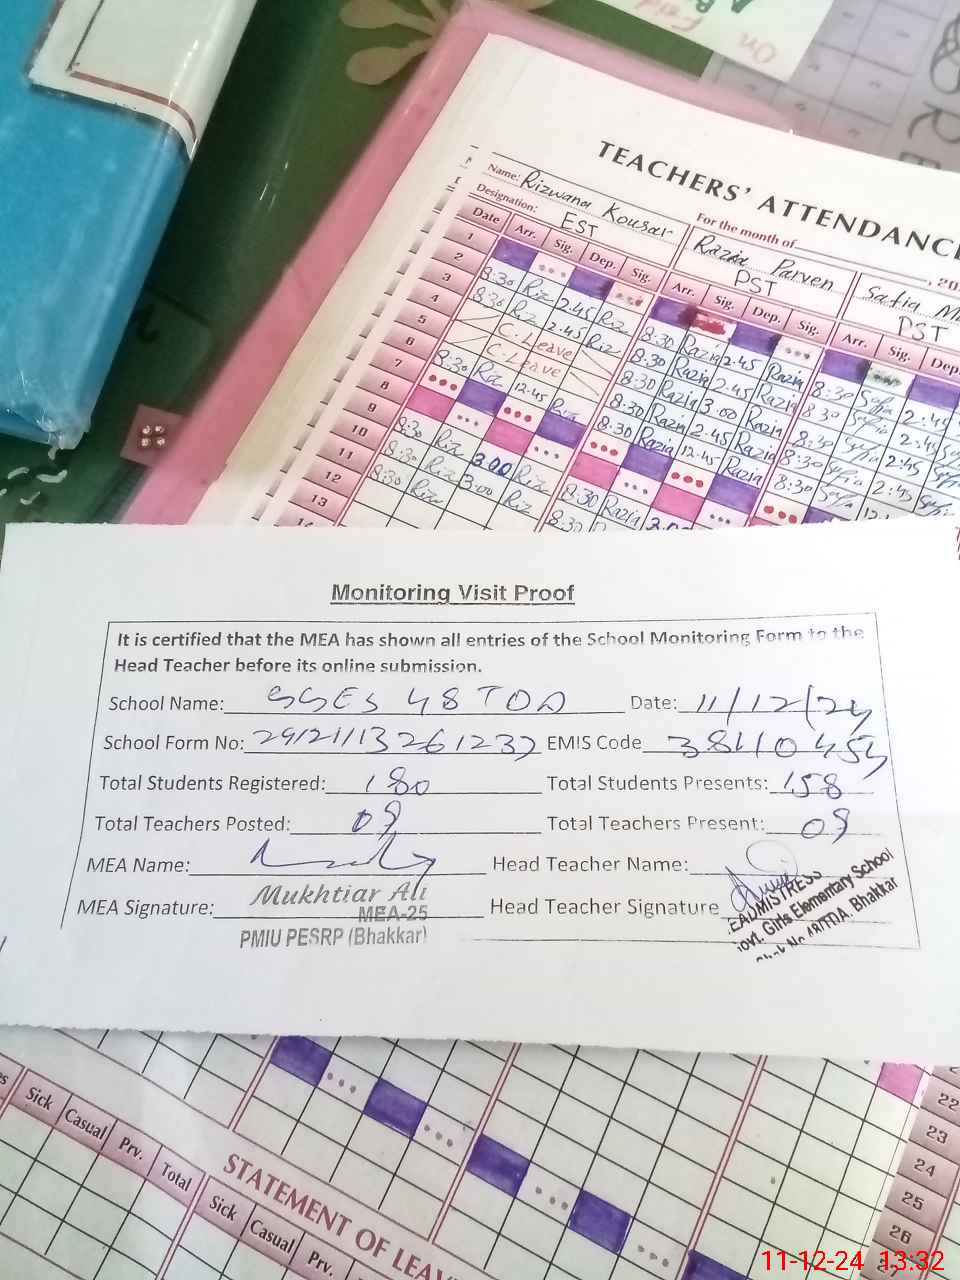 On
TEACHERS' ATTENDANCE
Name: Rizwana Kousar
For the month of
, 20
Designation: EST
Razia Parven
PST
Safia M
PST
Date Arr. Sig. Dep. Sig. Arr. Sig. Dep. Sig. Arr. Sig. Dep.
1
2
3 8:30 Riz 2:45 Riz 8:30 Razia 2:45 Razia 8:30 Safia 2:45
4 8:30 Riz 2:45 Riz 8:30 Razia 2:45 Razia 8:30 Safia 2:45
5 C. Leave 8:30 Razia 3:00 Razia 8:30 Safia 2:45
6 C. Leave 8:30 Razia 2:45 Razia 8:30 Safia 2:45
7 8:30 Riz 12:45 Riz 8:30 Razia 12:45 Razia 8:30 Safia
8
9
10 8:30 Riz 3:00 Riz 8:30 Razia
11 8:30 Riz 3:00 Riz 8:30
12 8:30 Riz
13
Monitoring Visit Proof
It is certified that the MEA has shown all entries of the School Monitoring Form to the
Head Teacher before its online submission.
School Name: GGES 48 TDA Date: 11/12/24
School Form No: 29121113261237 EMIS Code 38110454
Total Students Registered: 180 Total Students Presents: 158
Total Teachers Posted: 09 Total Teachers Present: 09
MEA Name: Head Teacher Name:
Mukhtiar Ali
MEA Signature: MEA-25 Head Teacher Signature
PMIU PESRP (Bhakkar)
EADMISTRESS
Govt. Girls Elementary School
Chak No 48/TDA, Bhakkar
Sick Casual Prv. Total
STATEMENT OF LEAV
Sick Casual Prv.
22
23
24
25
26
11-12-24 13:32